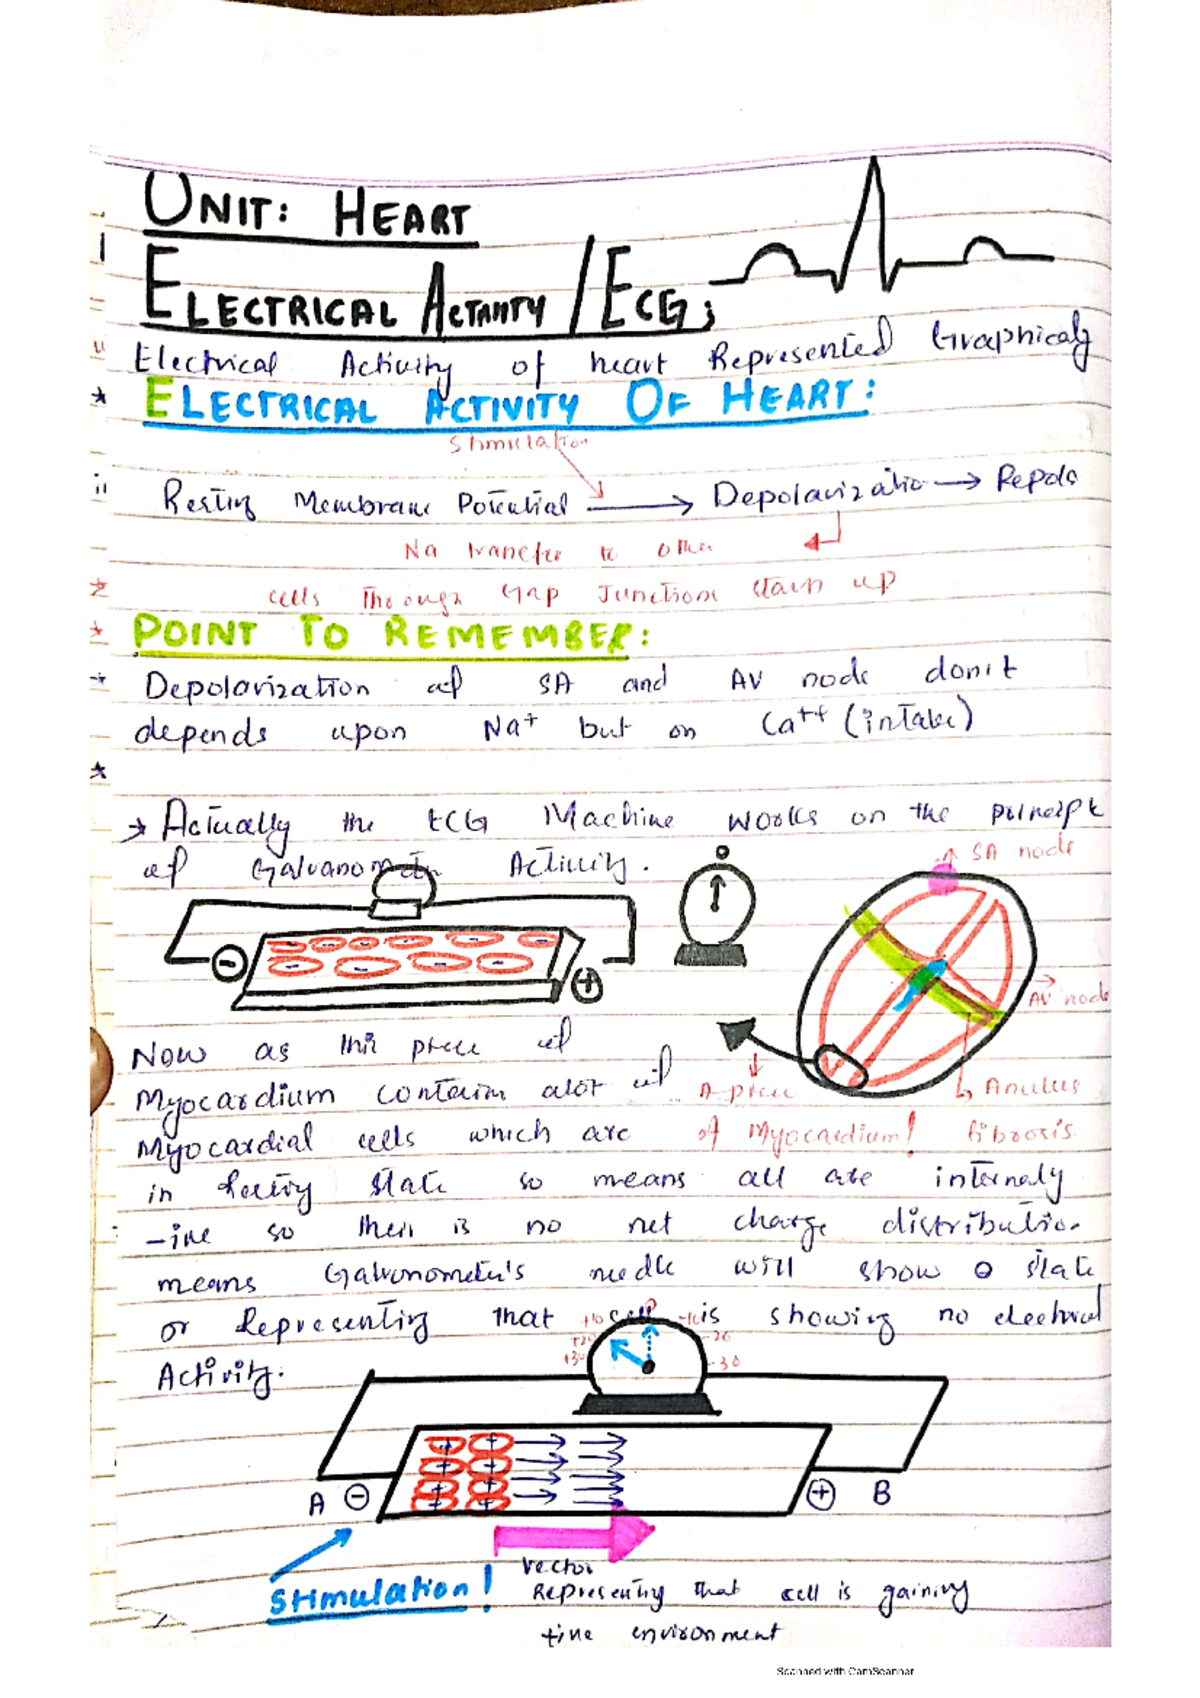 UNIT: HEART
ELECTRICAL ACTIVITY / ECG;
Electrical Activity of heart Represented Graphicaly
* ELECTRICAL ACTIVITY OF HEART:
Stimulation
ii Resting Membrane Potential → Depolarizatio → Repola
Na transfer to other
cells Through Gap Junctions
up
* POINT TO REMEMBER:
* Depolarization of SA and AV node don't
depends upon Na⁺ but on Ca⁺⁺ (intake)
*
→ Actually the ECG Machine works on the
of Activity.
0
SA node
⊖
⊕
AV node
Now as this piece of
Myocardium contains alot of
A piece
Anulus
Myocardial cells which are
of Myocardium!
fibrosis
in Resting state so means all are internaly
-ive so there is no net charge distributio.
means Galvonometer's needle will show 0 state
or Representing that cell is showing no electrical
Activity.
+10 0 -10
+20 -20
+30 -30
A ⊖
⊕ B
Stimulation!
Vector
Representing that cell is gaining
+ive environment
Scanned with CamScanner